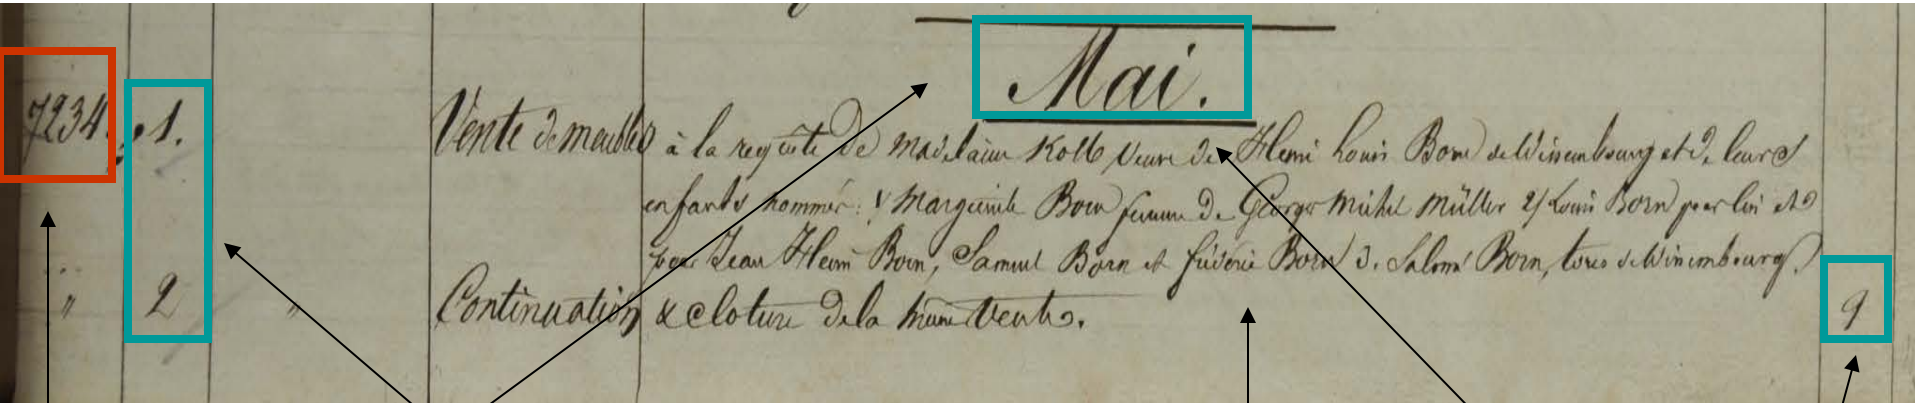 Mai.
7234. 1. Vente de meubles à la requête de Madelaine Kolb veuve de Henri Louis Born de Wissembourg et de leurs
enfants nommés: 1/ Marguerite Born femme de George Michel Müller 2/ Louis Born pour lui et
pour Jean Henri Born, Samuel Born et Fréderic Born 3. Salomé Born, tous de Wissembourg.
" 2 " Continuation & cloture de la même vente. 9